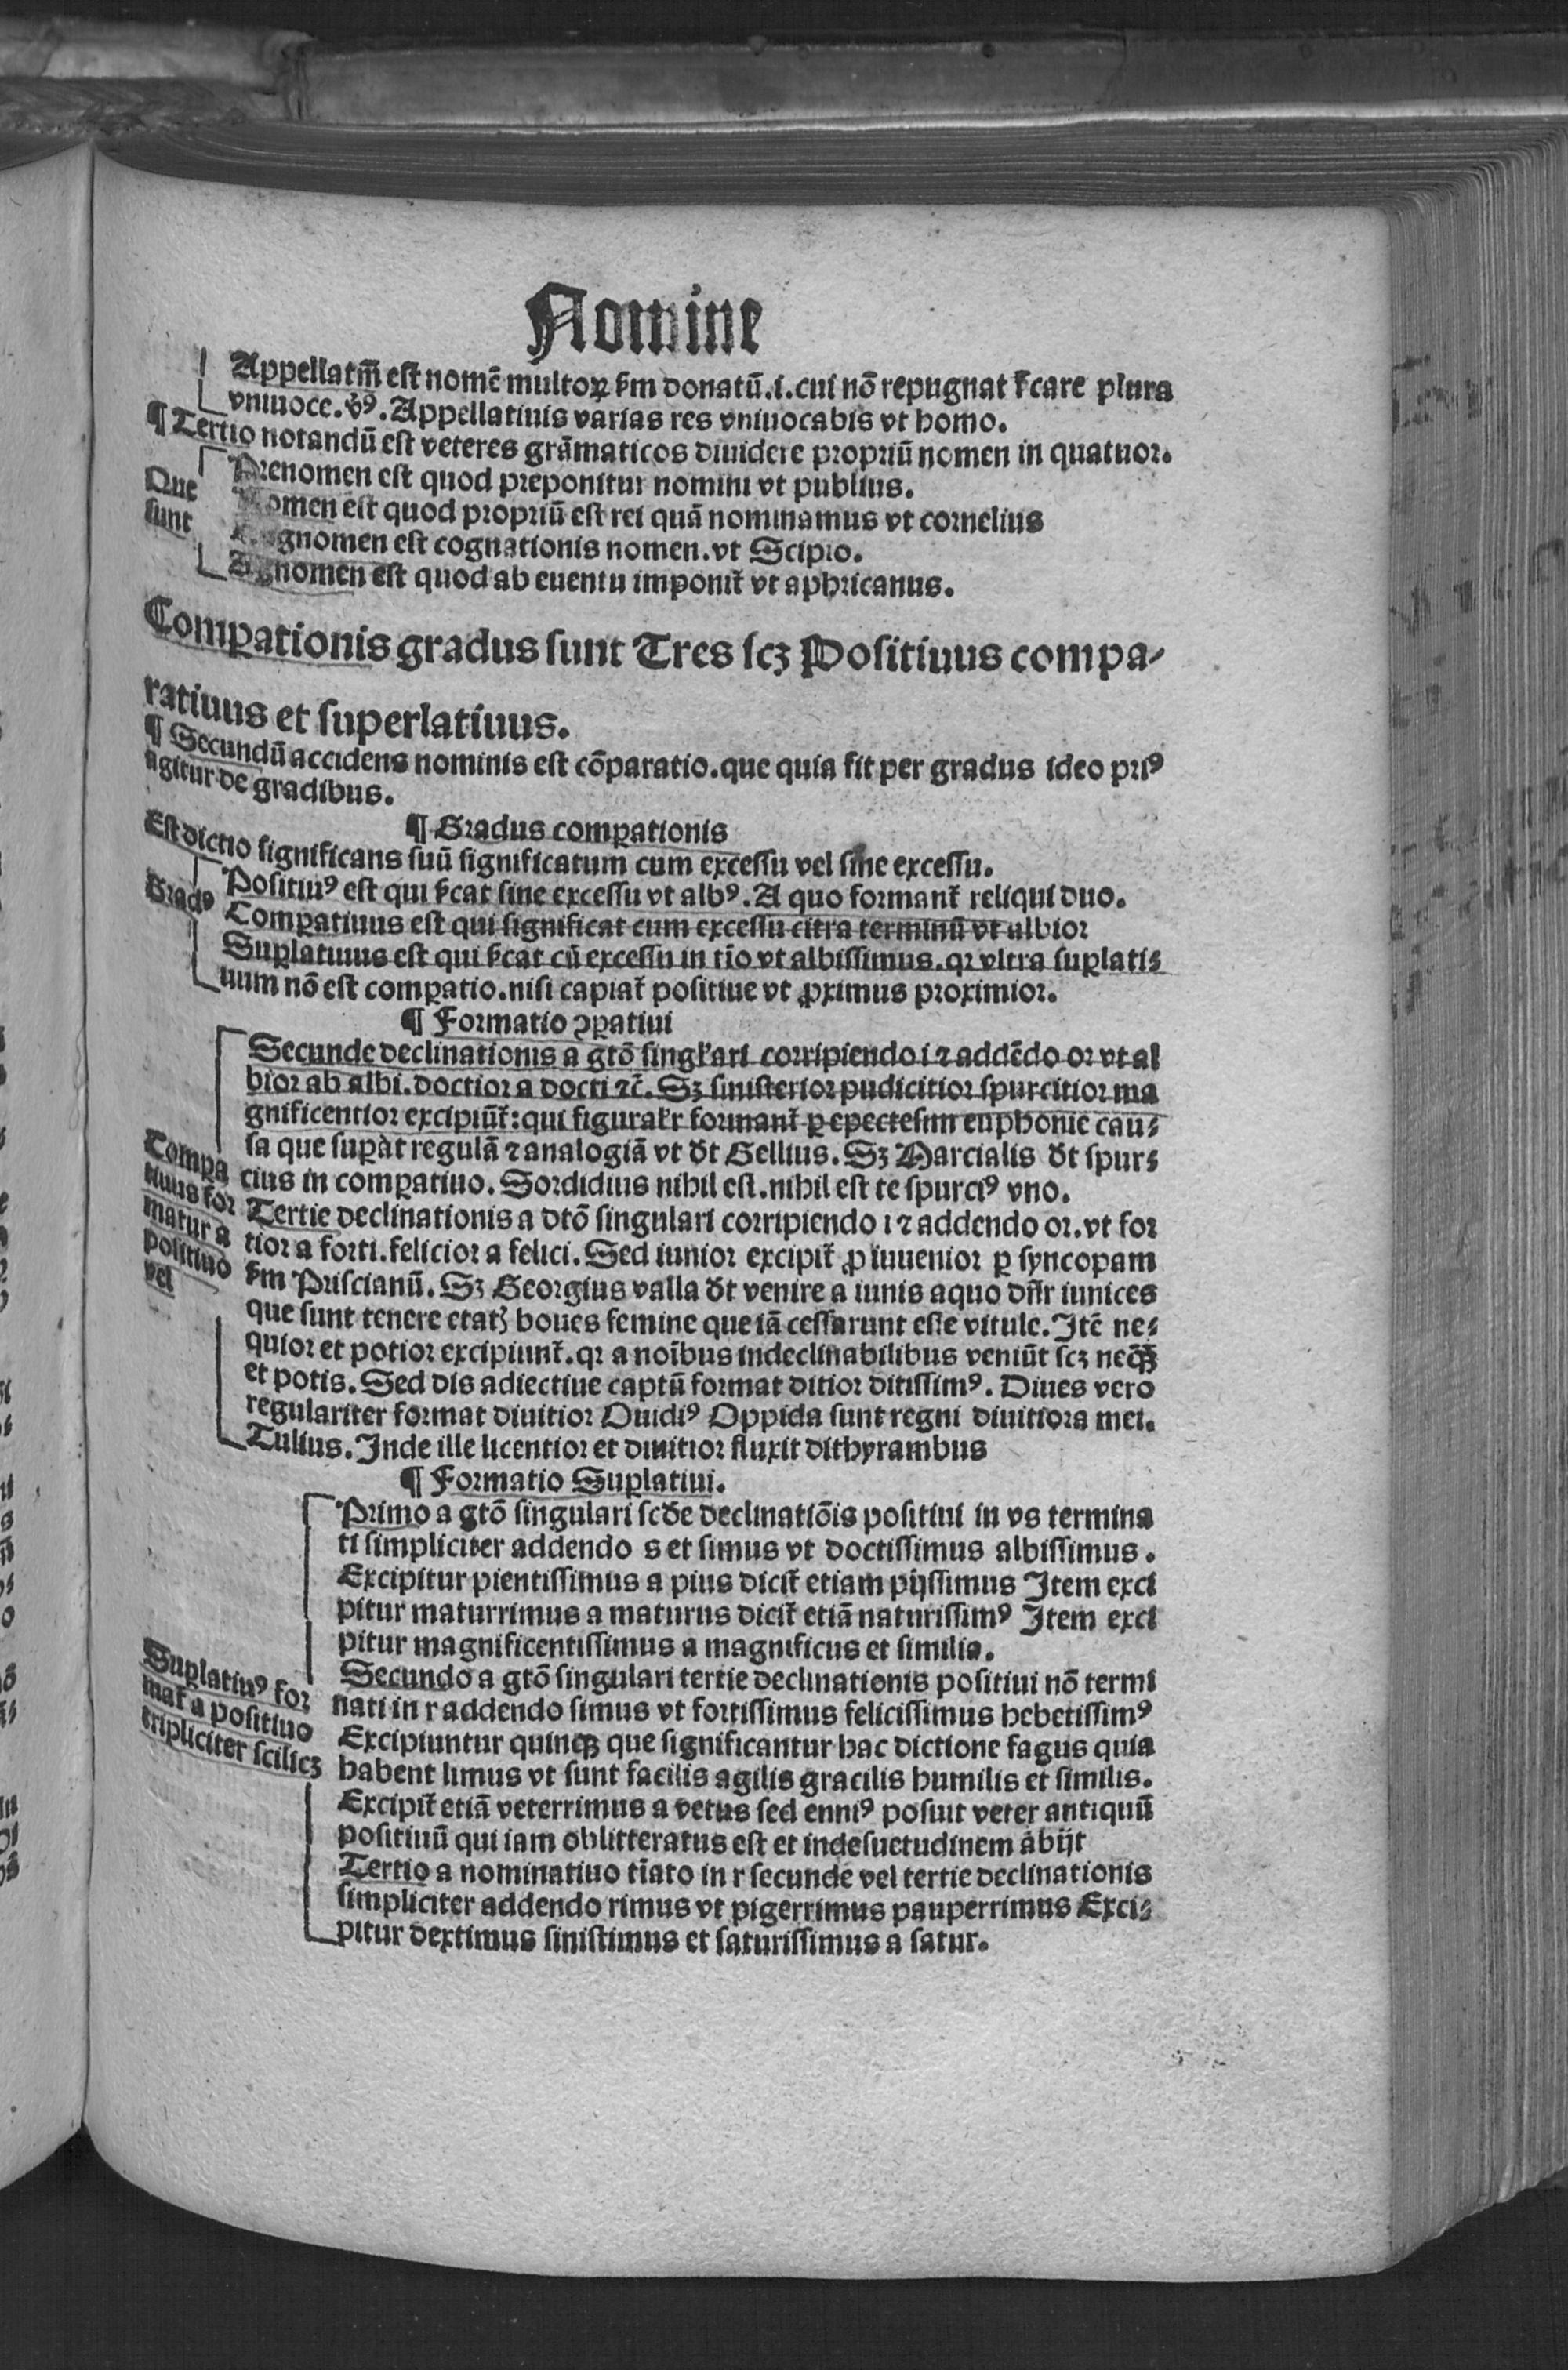 Nomine
Appellatm̄ est nomē multoꝝ ẜm donatū.i.cui nō repugnat ẜcare plura
vniuoce.v̄ꝰ.Appellatiuis varias res vniuocabis vt homo.
¶ Tertio notandū est veteres grāmaticos diuidere propriū nomen in quatuor.
Que
sunt
Prenomen est quod preponitur nomini vt publius.
Nomen est quod propriū est rei quā nominamus vt cornelius
Cognomen est cognationis nomen.vt Scipio.
Agnomen est quod ab euentu imponit̄ vt aphricanus.
Comꝑationis gradus sunt Tres scꝫ Positiuus compa-
ratiuus et superlatiuus.
¶ Secundū accidens nominis est cōparatio.que quia fit per gradus ideo priꝰ
agitur de gradibus.
¶ Gradus comꝑationis
Est dictio significans suū significatum cum excessu vel sine excessu.
Gradꝰ
Positiuꝰ est qui ẜcat sine excessu vt albꝰ. A quo formant̄ reliqui duo.
Comꝑatiuus est qui significat cum excessu citra terminū vt albior
Suꝑlatiuus est qui ẜcat cū excessu in tīo vt albissimus.qꝛ vltra suꝑlati-
uum nō est comꝑatio.nisi capiat̄ positiue vt ꝓximus proximior.
¶ Formatio ꝯꝑatiui
Compa
tiuus for
matur a
positiuo
vel
Secunde declinationis a gtō singl'ari corripiendo i ⁊ addēdo or vt al
bior ab albi.doctior a docti ⁊c̄. Sꝫ sinisterior pudicitior spurcitior ma
gnificentior excipiūt̄:qui figural'r formant̄ ꝑ epectesim euphonie cau-
sa que suꝑat regulā ⁊ analogiā vt dt̄ Gellius. Sꝫ Marcialis dt̄ spur-
cius in comꝑatiuo. Sordidius nihil est.nihil est te spurciꝰ vno.
Tertie declinationis a dtō singulari corripiendo i ⁊ addendo or.vt for
tior a forti.felicior a felici. Sed iunior excipit̄ ꝓ iuuenior ꝑ syncopam
ẜm Priscianū. Sꝫ Georgius valla dt̄ venire a iunis aquo dn̄r iunices
que sunt tenere etatꝭ boues femine que iā cessarunt esse vitule. Itē ne-
quior et potior excipiunt̄.qꝛ a noībus indeclinabilibus veniūt scꝫ neq̄ꝫ
et potis. Sed dis adiectiue captū format ditior ditissimꝰ. Diues vero
regulariter format diuitior Ouidiꝰ Oppida sunt regni diuitiora mei.
Tulius. Inde ille licentior et diuitior fluxit dithyrambus
¶ Formatio Suꝑlatiui.
Suꝑlatiuꝰ for
mat̄ a positiuo
tripliciter scilicꝫ
Primo a gtō singulari scd̄e declinatiōis positiui in vs termina
ti simpliciter addendo s et simus vt doctissimus albissimus.
Excipitur pientissimus a pius dicit̄ etiam pijssimus Item exci
pitur maturrimus a maturus dicit̄ etiā naturissimꝰ Item exci
pitur magnificentissimus a magnificus et similia.
Secundo a gtō singulari tertie declinationis positiui nō termi
nati in r addendo simus vt fortissimus felicissimus hebetissimꝰ
Excipiuntur quinqꝫ que significantur hac dictione fagus quia
habent limus vt sunt facilis agilis gracilis humilis et similis.
Excipit̄ etiā veterrimus a vetus sed enniꝰ posuit veter antiquū
positiuū qui iam oblitteratus est et indesuetudinem abijt
Tertio a nominatiuo tīato in r secunde vel tertie declinationis
simpliciter addendo rimus vt pigerrimus pauperrimus Exci-
pitur dextimus sinistimus et saturissimus a satur.